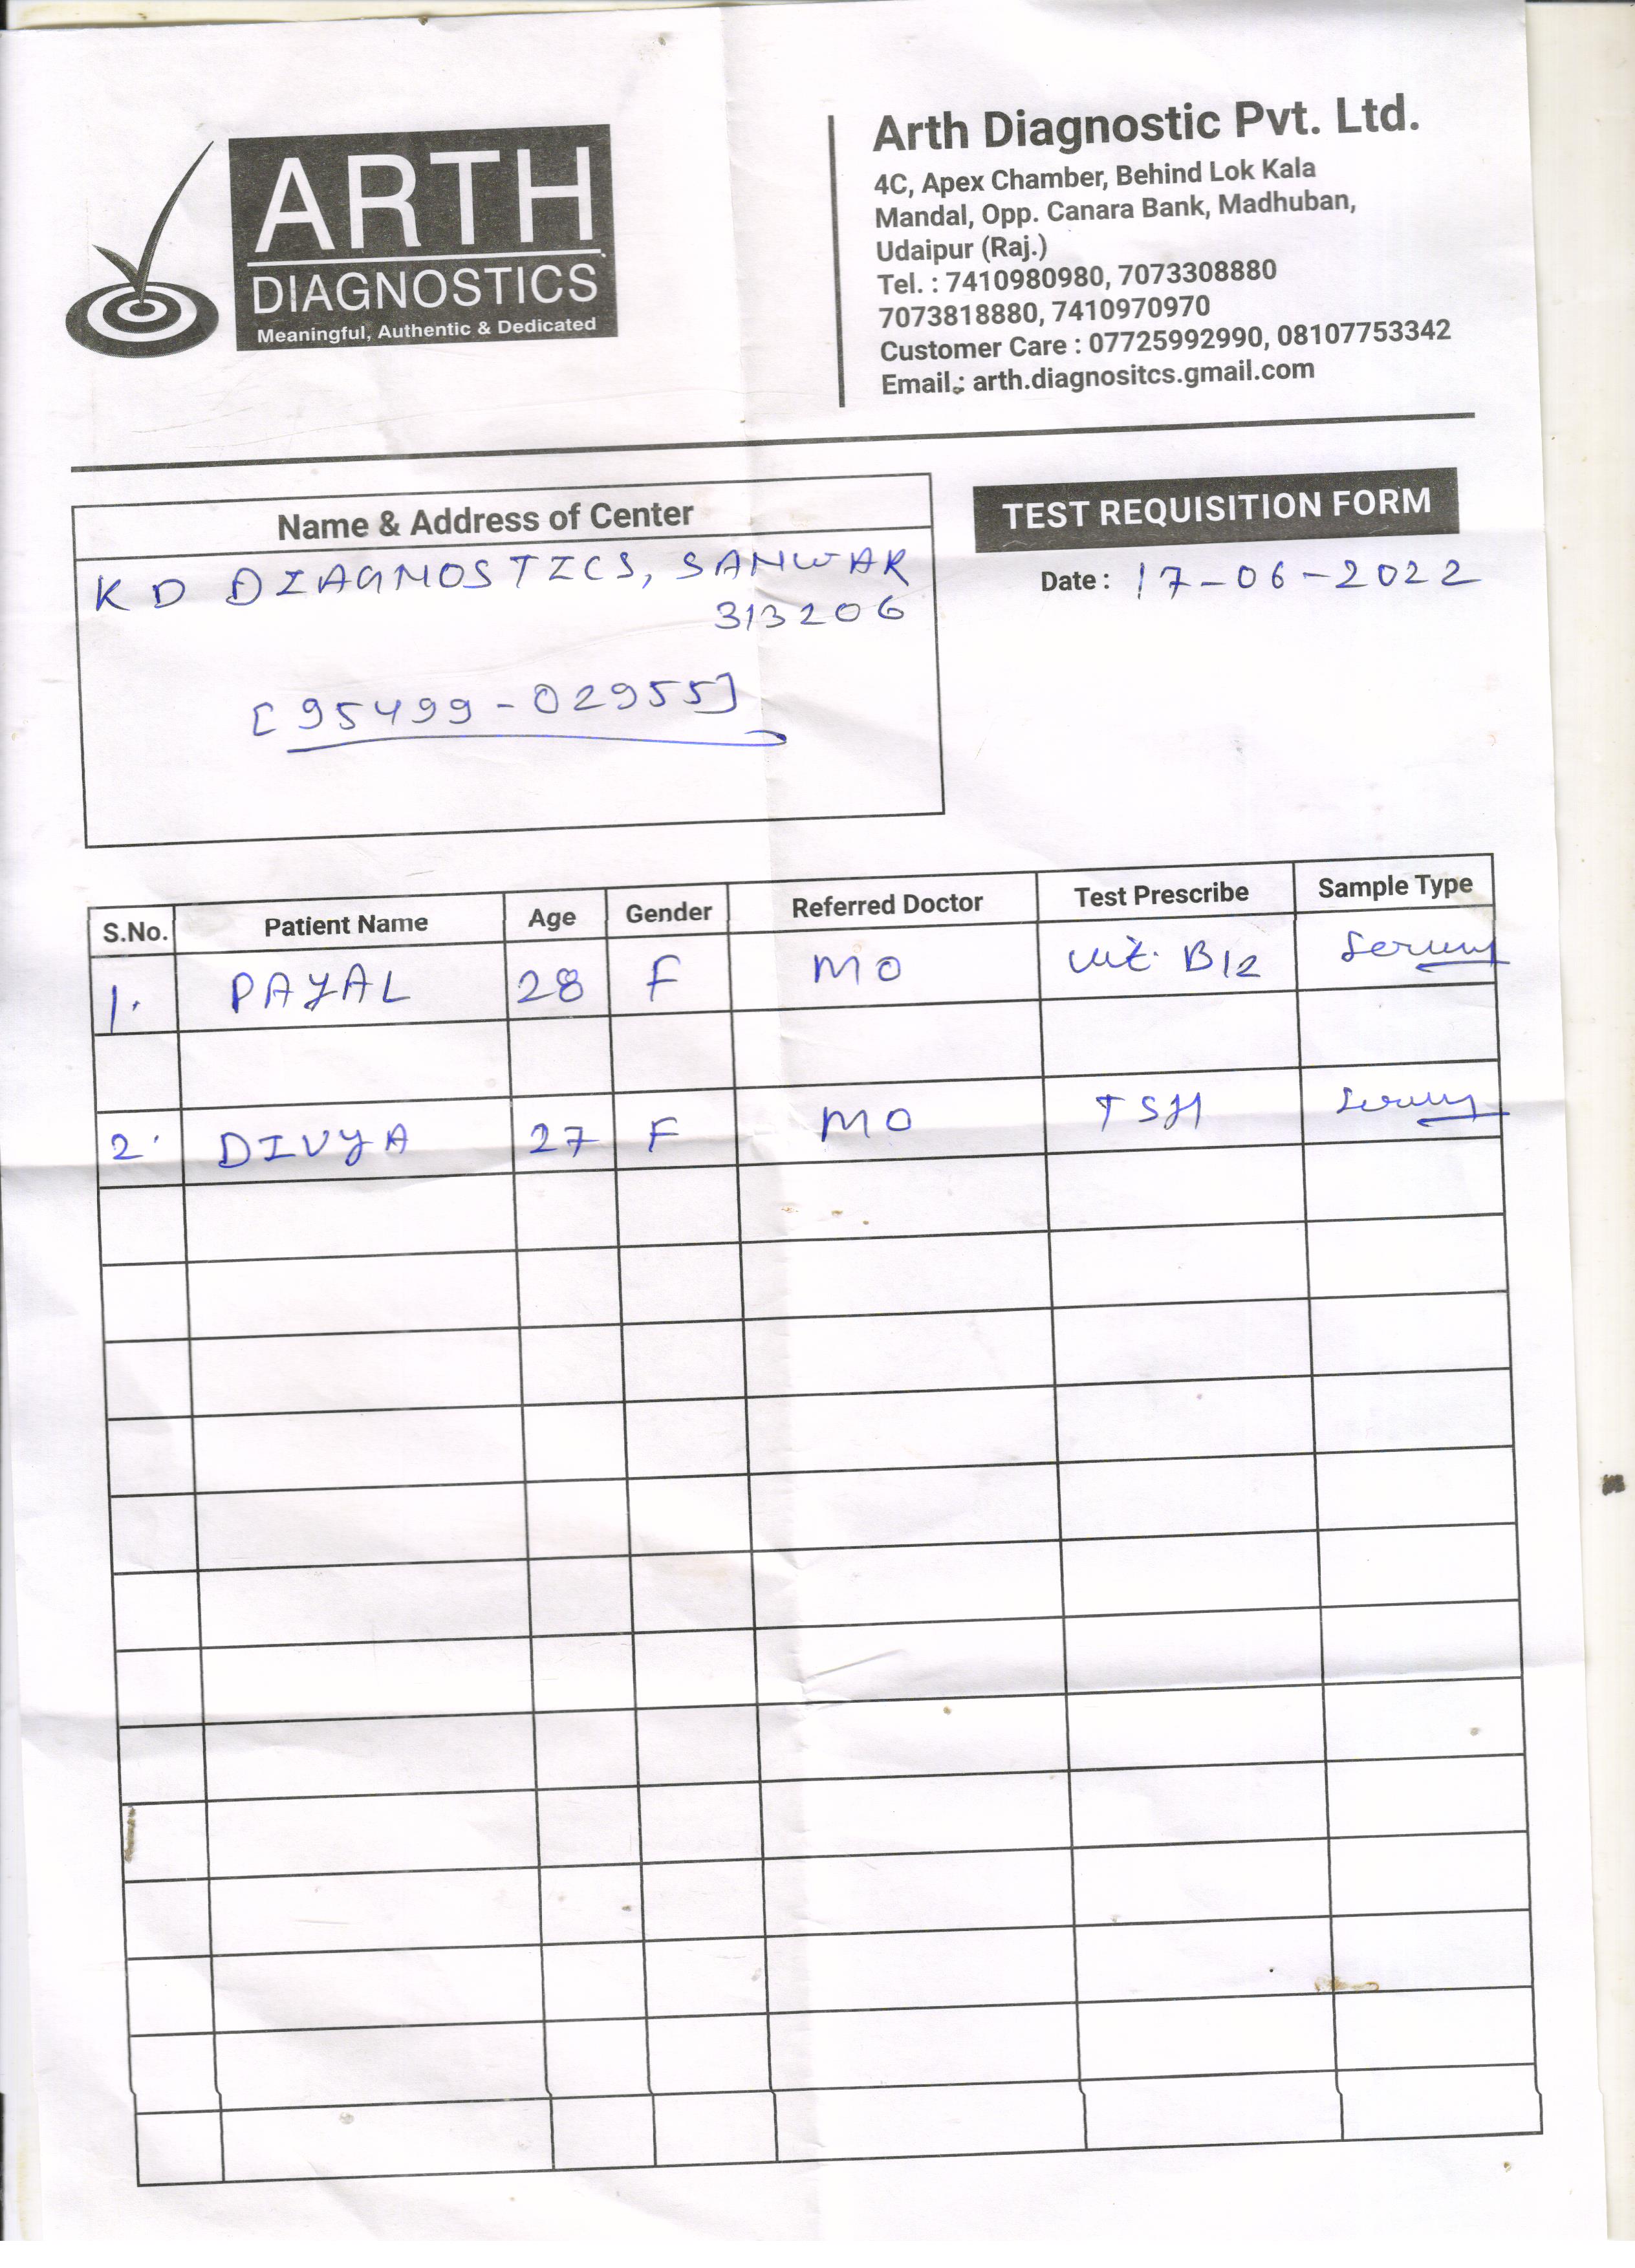 ARTH
DIAGNOSTICS
Meaningful, Authentic & Dedicated
Arth Diagnostic Pvt. Ltd.
4C, Apex Chamber, Behind Lok Kala
Mandal, Opp. Canara Bank, Madhuban,
Udaipur (Raj.)
Tel. : 7410980980, 7073308880
7073818880, 7410970970
Customer Care : 07725992990, 08107753342
Email : arth.diagnositcs.gmail.com
Name & Address of Center
KD DIAGNOSTICS, SANWAR
313206
[95499-02955]
TEST REQUISITION FORM
Date : 17-06-2022
S.No. Patient Name Age Gender Referred Doctor Test Prescribe Sample Type
1. PAYAL 28 F MO Vit. B12 Serum
2. DIVYA 27 F MO TSH Serum